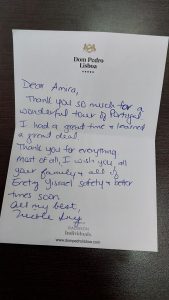 Dom Pedro
Lisboa
Dear Amira,
Thank you so much for a
wonderful tour of Portugal
I had a great time & learned
a great deal.
Thank you for everything
Most of all, I wish you, all
your family & all of
Eretz Yisrael safety & better
times soon
All my best,
Individuals
www.dompedrolisboa.com